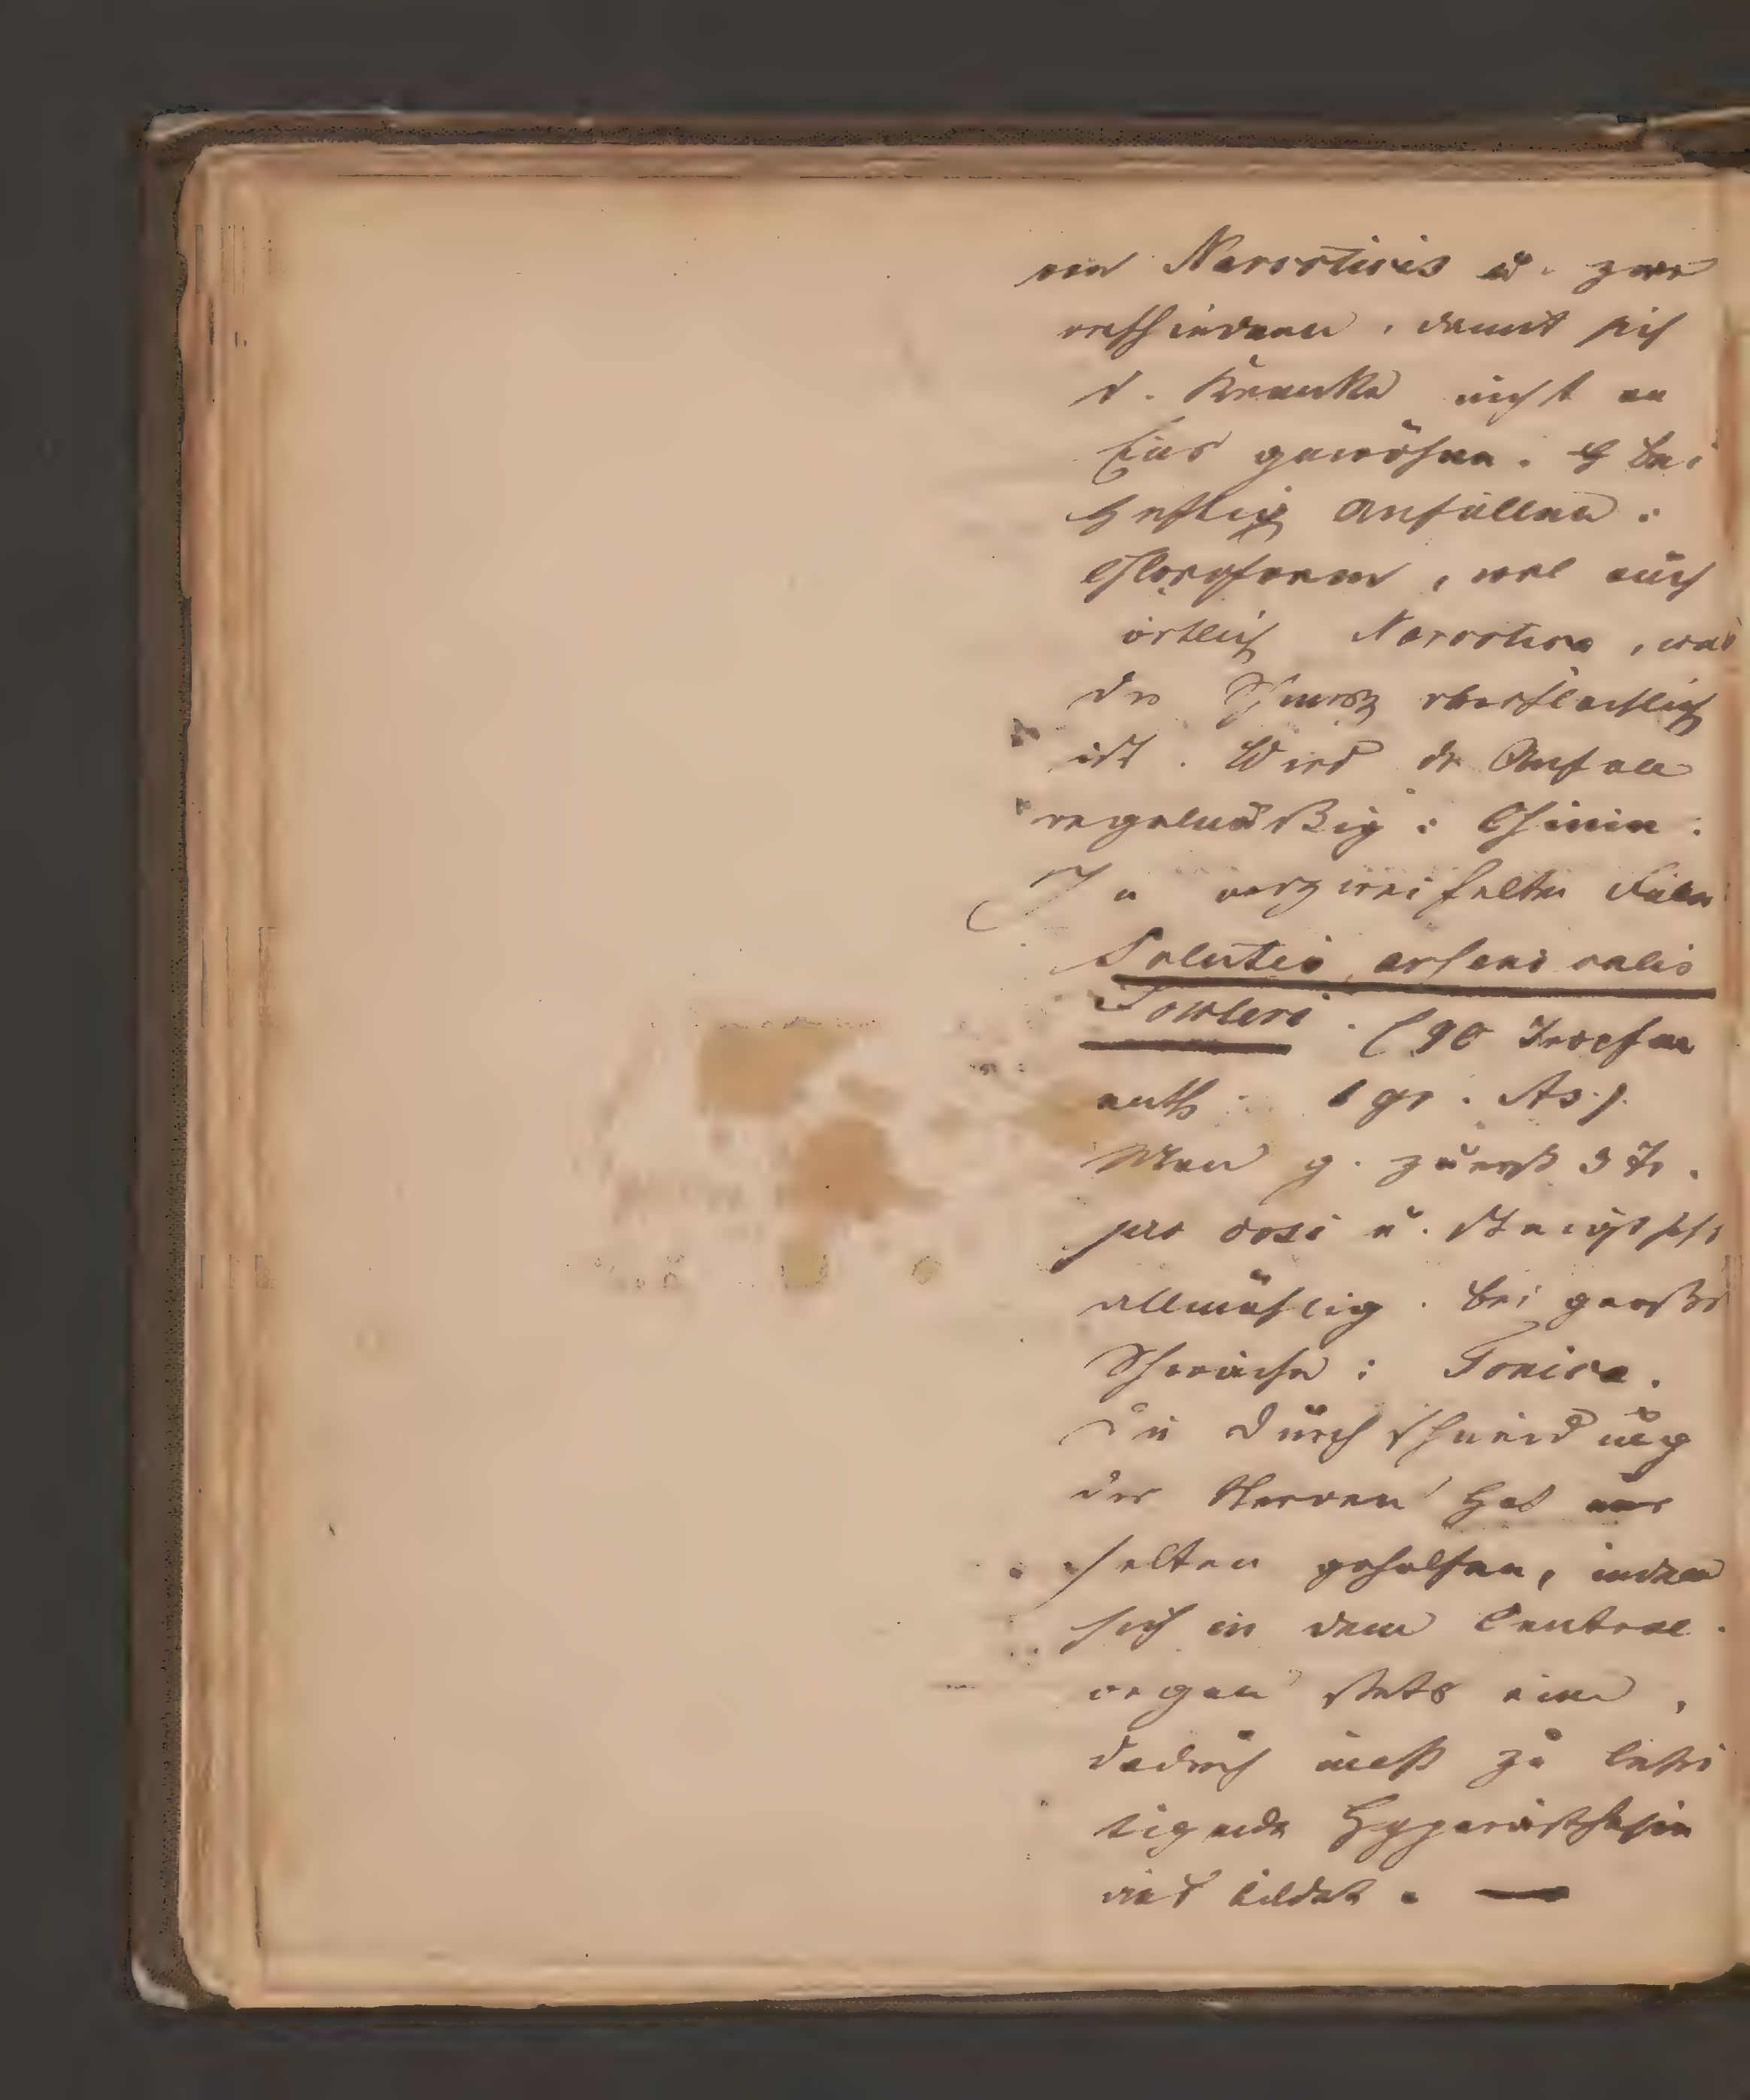 von Narcoticis u. zwar
verschiedenen, damit sich
d. Kranke nicht an
Eins gewöhne. Bei
heftig Anfällen:
Chloroform, wol auch
örtlich Narcotica, wo
der Schmerz oberflächlich
ist. Wird der Anfall
regelmäßig: Chinin.
In verzweifelten Fällen
Solutio arsenicalis
Fowleri. (90 Tropfen
enth. 1 gr. As.)
Man g. zuerst 3 Tr.
pro dosi u. steigt
allmählig. Bei großer
Schwäche: Tonica.
Die Durchschneidung
der Nerven hat nur
selten geholfen, indem
sich in dem Central
organ stets eine,
dadurch nicht zu besei
tigende Hyperästhesie
bildet. —